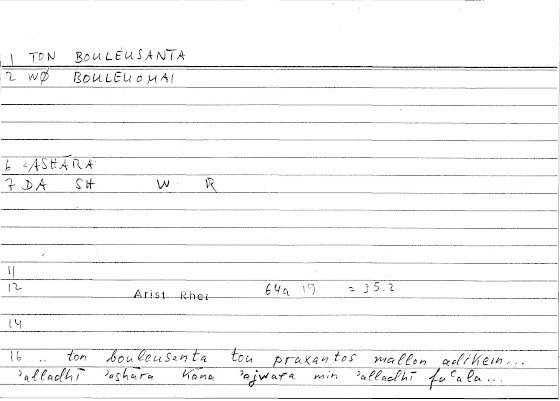 1 TON BOULEUSANTA
2 WØ BOULEUOMAI
6 ʾASHĀRA
7 DA SH W R
11
12 Arist Rhet 64a 19 = 35.2
14
16 .. ton bouleusanta tou praxantos mallon adikein...
ʾalladhī ʾashāra kāna ʾajwara min ʾalladhī faʿala...